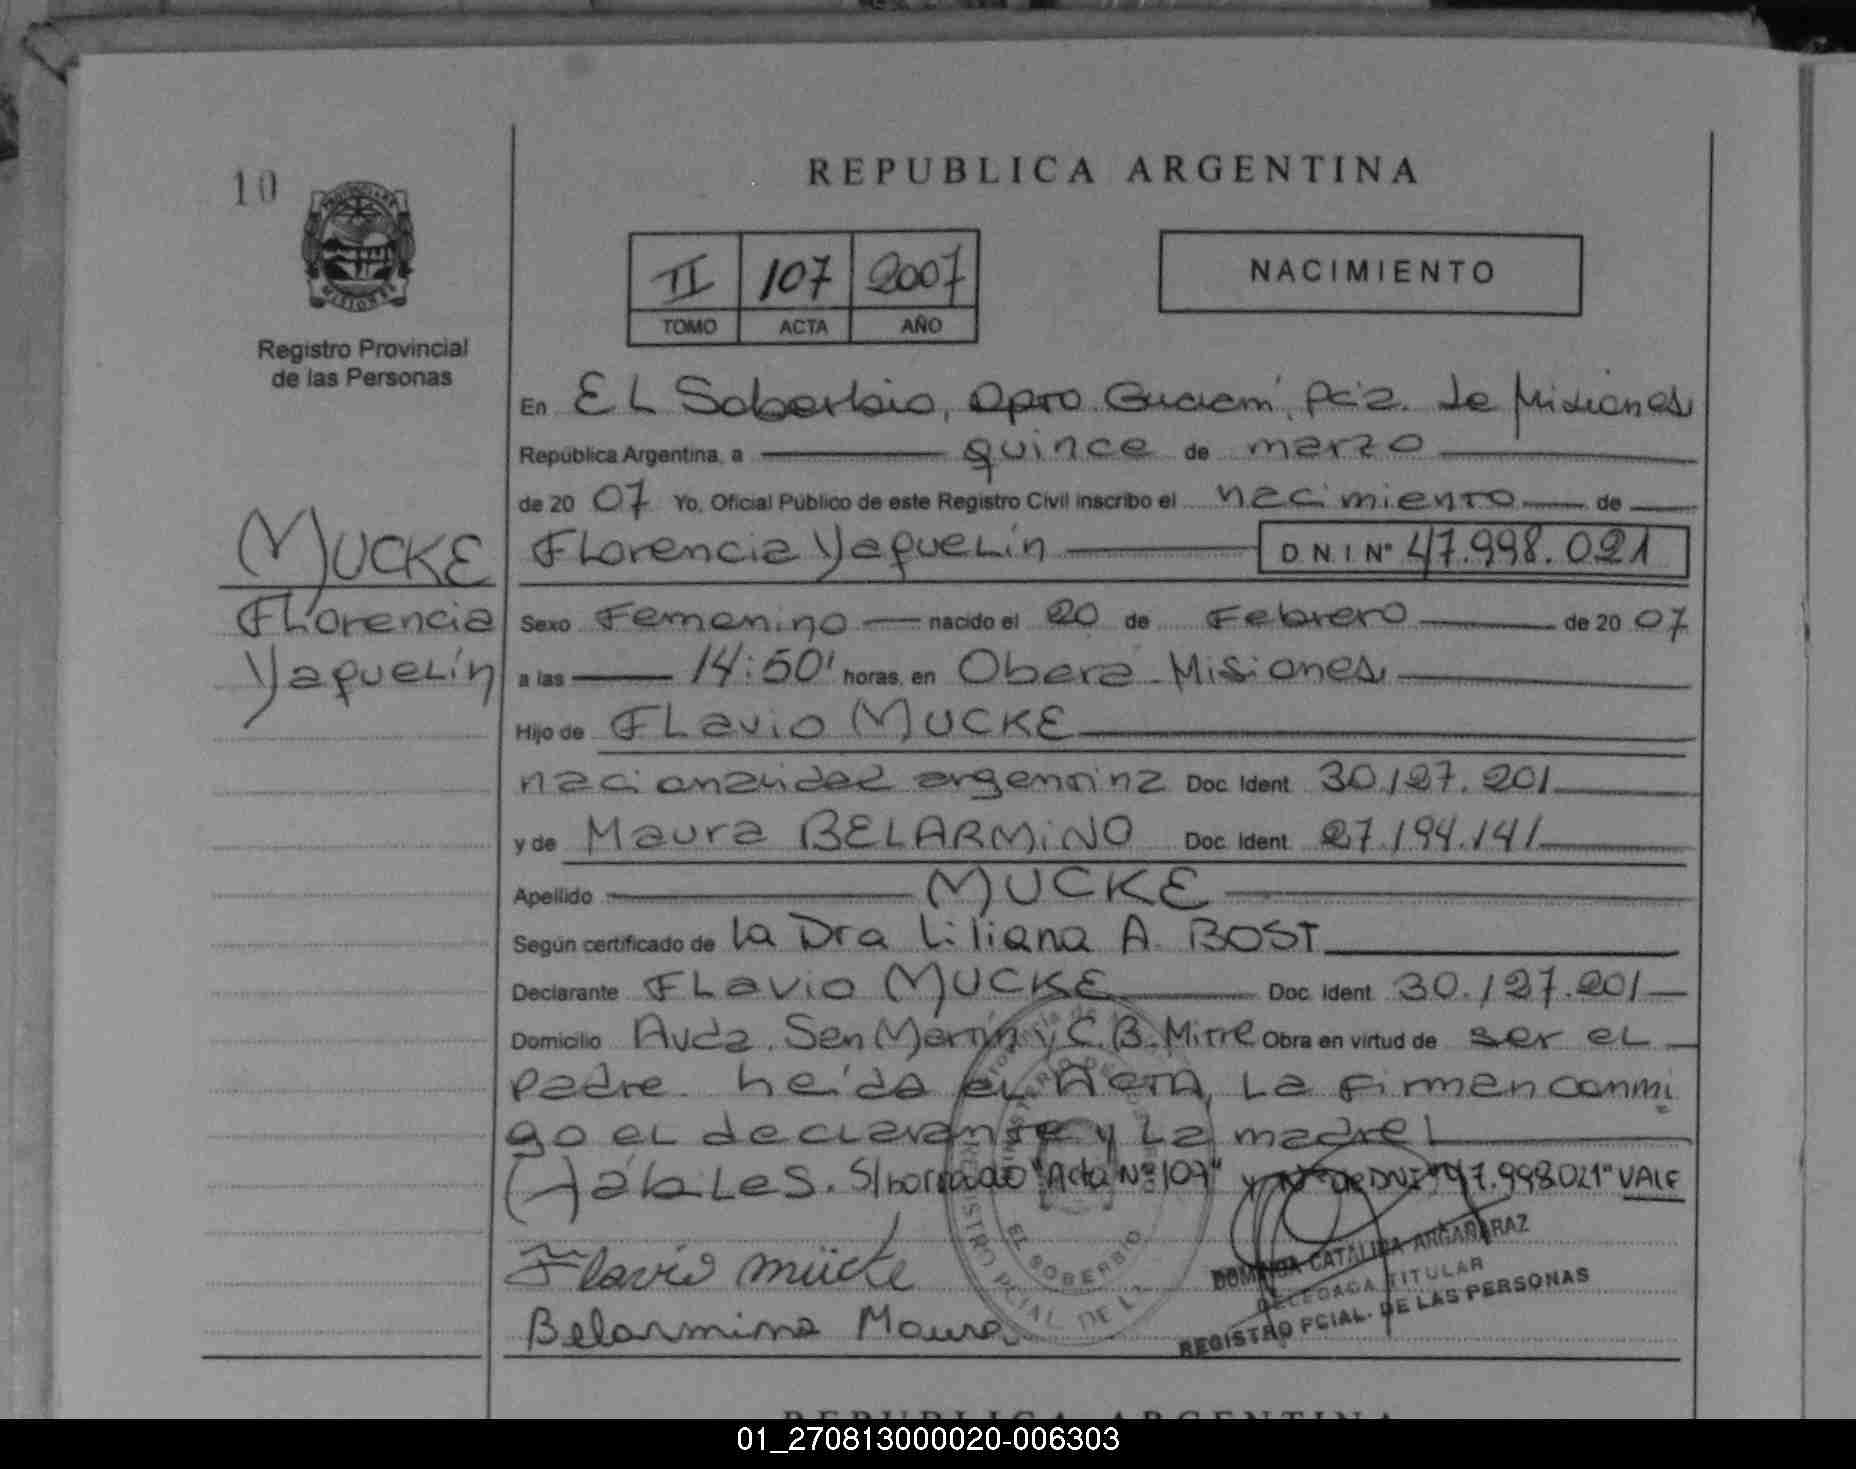 REPUBLICA ARGENTINA
10
MISIONES
Registro Provincial
de las Personas
II 107 2007
TOMO ACTA AÑO
NACIMIENTO
En EL Soberbio, Dpto. Guaraní, Pcia. de Misiones
República Argentina, a quince de marzo
de 20 07 Yo, Oficial Público de este Registro Civil inscribo el nacimiento de
MUCKE
Florencia
Yaquelín
Florencia Yaquelín D.N.I Nº 47.998.021
Sexo Femenino nacido el 20 de Febrero de 20 07
a las 14:50' horas, en Oberá - Misiones
Hijo de Flavio MUCKE
nacionalidad argentina Doc. Ident. 30.127.201
y de Maura BELARMINO Doc. Ident. 27.194.141
Apellido MUCKE
Según certificado de la Dra Liliana A. BOST
Declarante Flavio MUCKE Doc. Ident. 30.127.201
Domicilio Avda. San Martín y C. B. Mitre Obra en virtud de ser el
padre. Leída el Acta, La firman conmi
go el declarante y La madre
hábiles. S/borrado "Acta Nº 107" y Nº de DNI "47.998.021" VALE
Flavio Mücke
Belarmino Maura
EL SOBERBIO
REGISTRO PCIAL DE L
DOMINGA CATALINA ARGAÑARAZ
DELEGADA TITULAR
REGISTRO PCIAL. DE LAS PERSONAS
REPUBLICA ARGENTINA
01_270813000020-006303